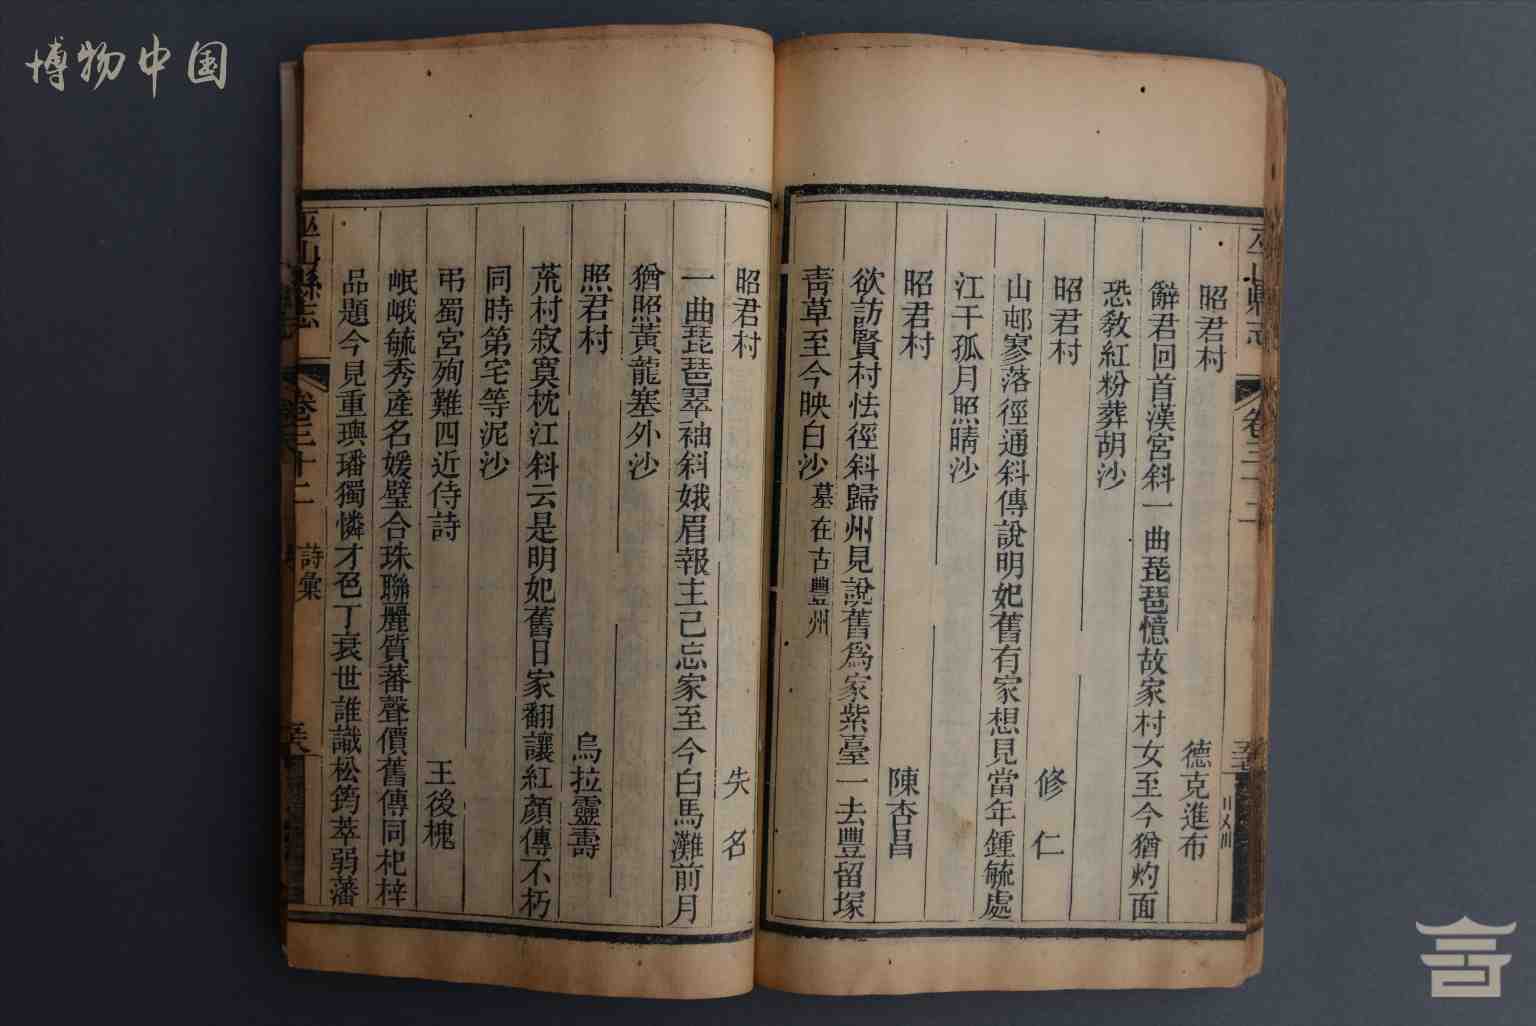 博物中国
昭君村
德克進布
辭君回首漢宮斜一曲琵琶憶故家村女至今猶灼面
恐教紅粉葬胡沙
昭君村
修仁
山邨寥落徑通斜傳說明妃舊有家想見當年鍾毓處
江干孤月照晴沙
昭君村
陳杏昌
欲訪賢村怯徑斜歸州見說舊為家紫臺一去豐留塚
青草至今映白沙墓在古豐州
昭君村
失名
一曲琵琶翠袖斜娥眉報主己忘家至今白馬灘前月
猶照黃龍塞外沙
照君村
烏拉靈壽
荒村寂寞枕江斜云是明妃舊日家翻讓紅顏傳不朽
同時第宅等泥沙
弔蜀宮殉難四近侍詩
王後槐
岷峨毓秀產名媛璧合珠聯麗質蕃聲價舊傳同杞梓
品題今見重璵璠獨憐才色丁衰世誰識松筠萃弱藩
巫山縣志
卷三十二
詩彙